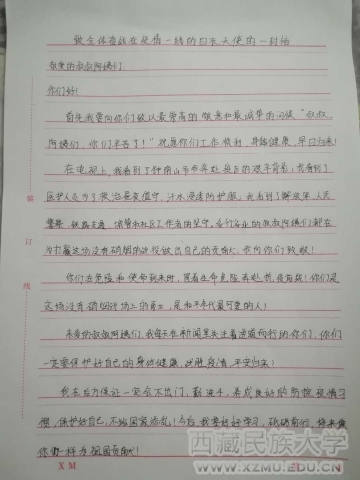 致全体奋战在疫情一线的白衣天使的一封信
敬爱的叔叔阿姨们
你们好！
首先我要向你们致以最崇高的敬意和最诚挚的问候“叔叔
阿姨们，你们辛苦了！”祝愿你们工作顺利，身体健康，早日归来！
在电视上，我看到了钟南山爷爷奔赴疫区的艰辛背影，我看到了
医护人员为了救治昼夜值守，汗水浸透防护服，我看到了解放军、人民
警察、铁路交通、城管和社区工作者的坚守，各行各业的叔叔阿姨们都在
为打赢这场没有硝烟的战役做出自己的贡献，我向你们致敬！
你们在危险和使命到来时，冒着生命危险奔赴抗疫前线！你们是
这场没有硝烟战场上的勇士，是和平年代最可爱的人！
亲爱的叔叔阿姨们，我每天在新闻里关注着逆境而行的你们，你们
一定要保护好自己的身体健康，战胜疫情，平安归来！
我在后方保证一定会不出门，勤洗手，养成良好的防控疫情习
惯，保护好自己，不给国家添乱！今后我要好好学习，砥砺前行，将来像
你们一样为祖国贡献！
装
订
线
XM
西藏民族大学
WWW.XZMU.EDU.CN